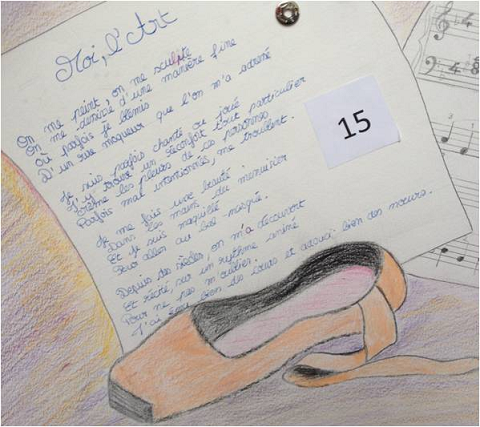 Moi, l'Art
On me peint, on me sculpte
On me dessine d'une manière fine
Où parfois je blêmis
D'un rire moqueur que l'on m'a adressé
Je suis parfois chanté ou joué
J'y trouve un réconfort tout particulier
Même les pleurs de ces personnes
Parfois mal intentionnés, me troublent.
Je me fais une beauté
Dans les mains du menuisier
Et je suis maquillé
Pour aller au bal masqué.
Depuis des siècles, on m'a découvert
Et récité, sur un rythme animé
Pour ne pas m'oublier.
J'ai bien des cœurs et adouci bien des mœurs.
15